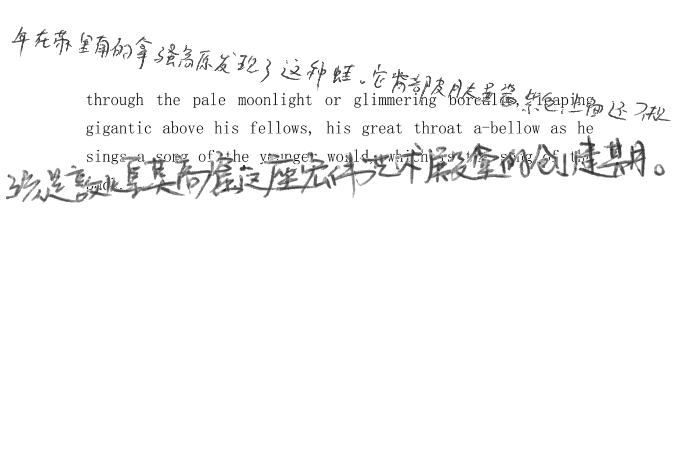 年在蒂里南的拿骚高原发现了这种蛙。它背部皮肤呈蓝紫色,上面还
through the pale moonlight or glimmering borealis, leaping
gigantic above his fellows, his great throat a-bellow as he
sings a song of the younger world, which is the song of the
pack.
这是敦煌莫高窟这座宏伟艺术殿堂的创建期。